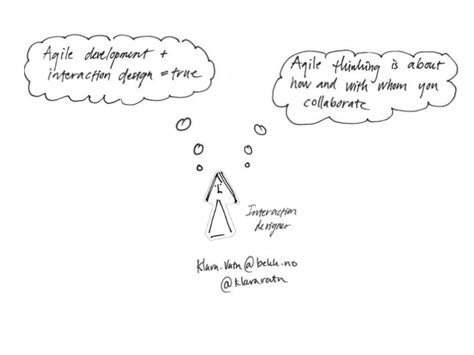 Agile development +
interaction design = true
Agile thinking is about
how and with whom you
collaborate
Interaction
designer
Klara.Vatn@bekk.no
@klaravatn